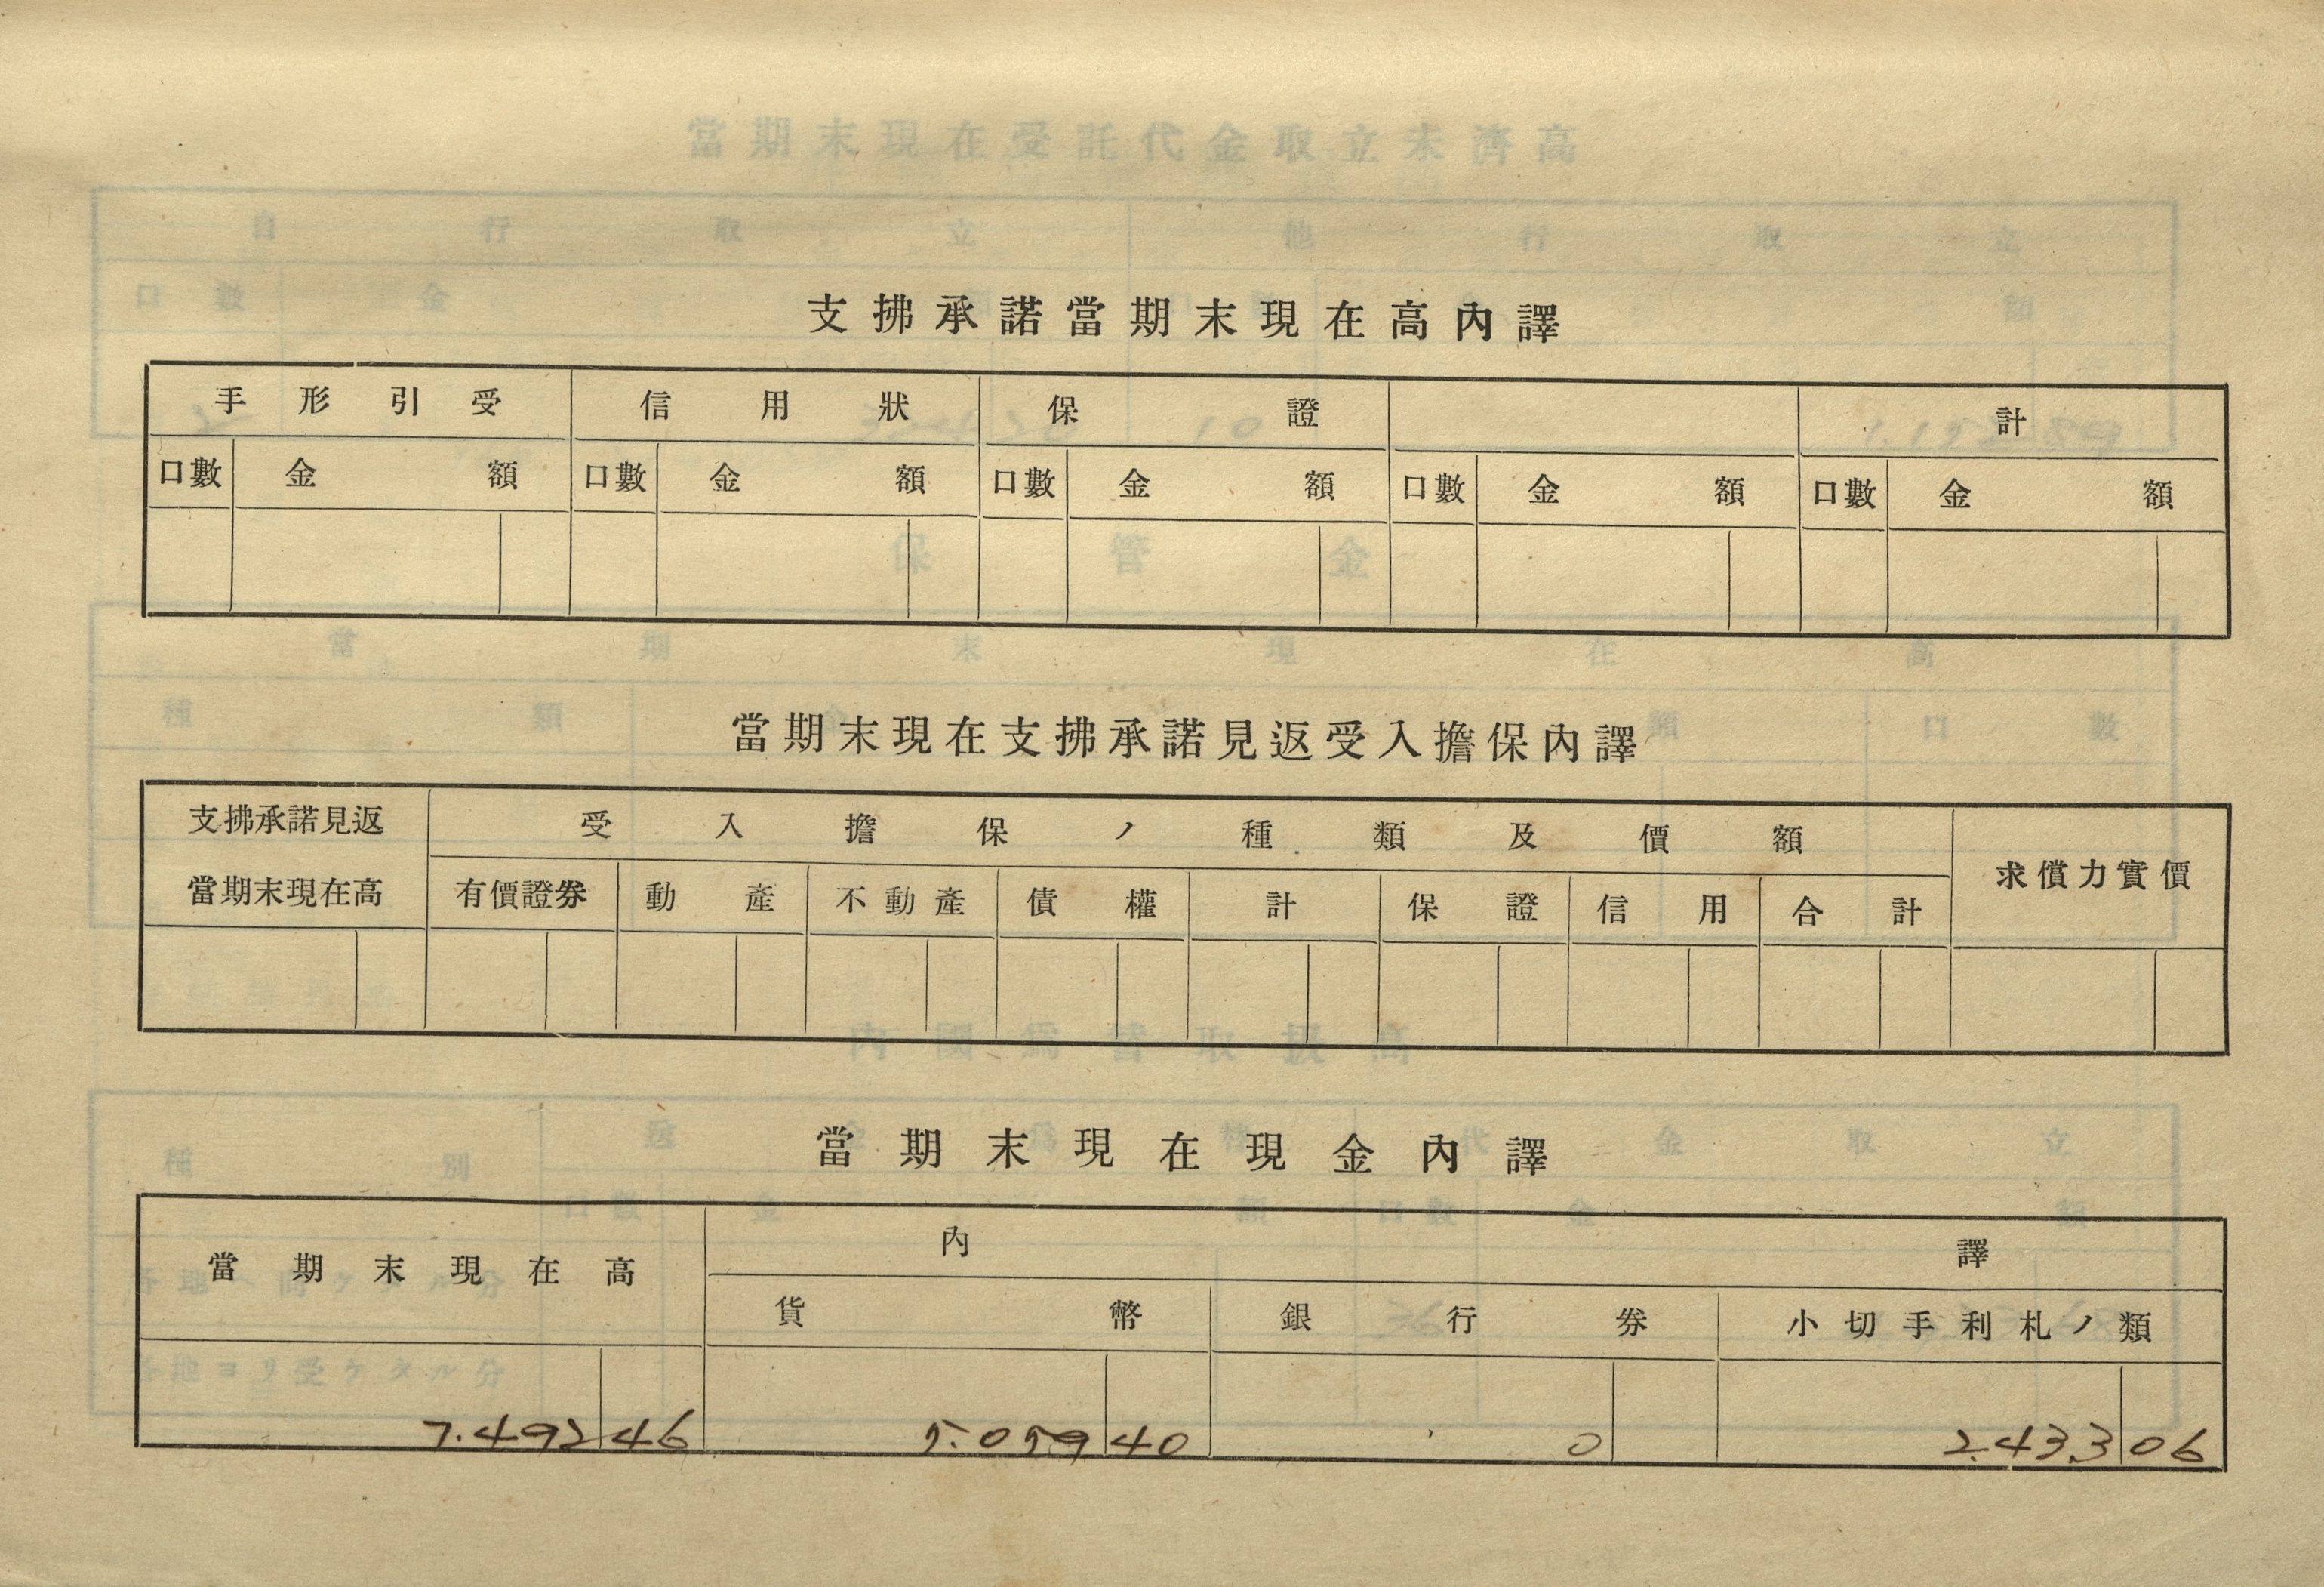 支拂承諾當期末現在高內譯
手形引受 信用狀 保證 計
口數 金額 口數 金額 口數 金額 口數 金額 口數 金額
當期末現在支拂承諾見返受入擔保內譯
支拂承諾見返 受入擔保ノ種類及價額 求償力實價
當期末現在高 有價證券 動產 不動產 債權 計 保證 信用 合計
當期末現在現金內譯
當期末現在高 內譯
貨幣 銀行券 小切手利札ノ類
7.492 46 5.059 40 0 2.433 06